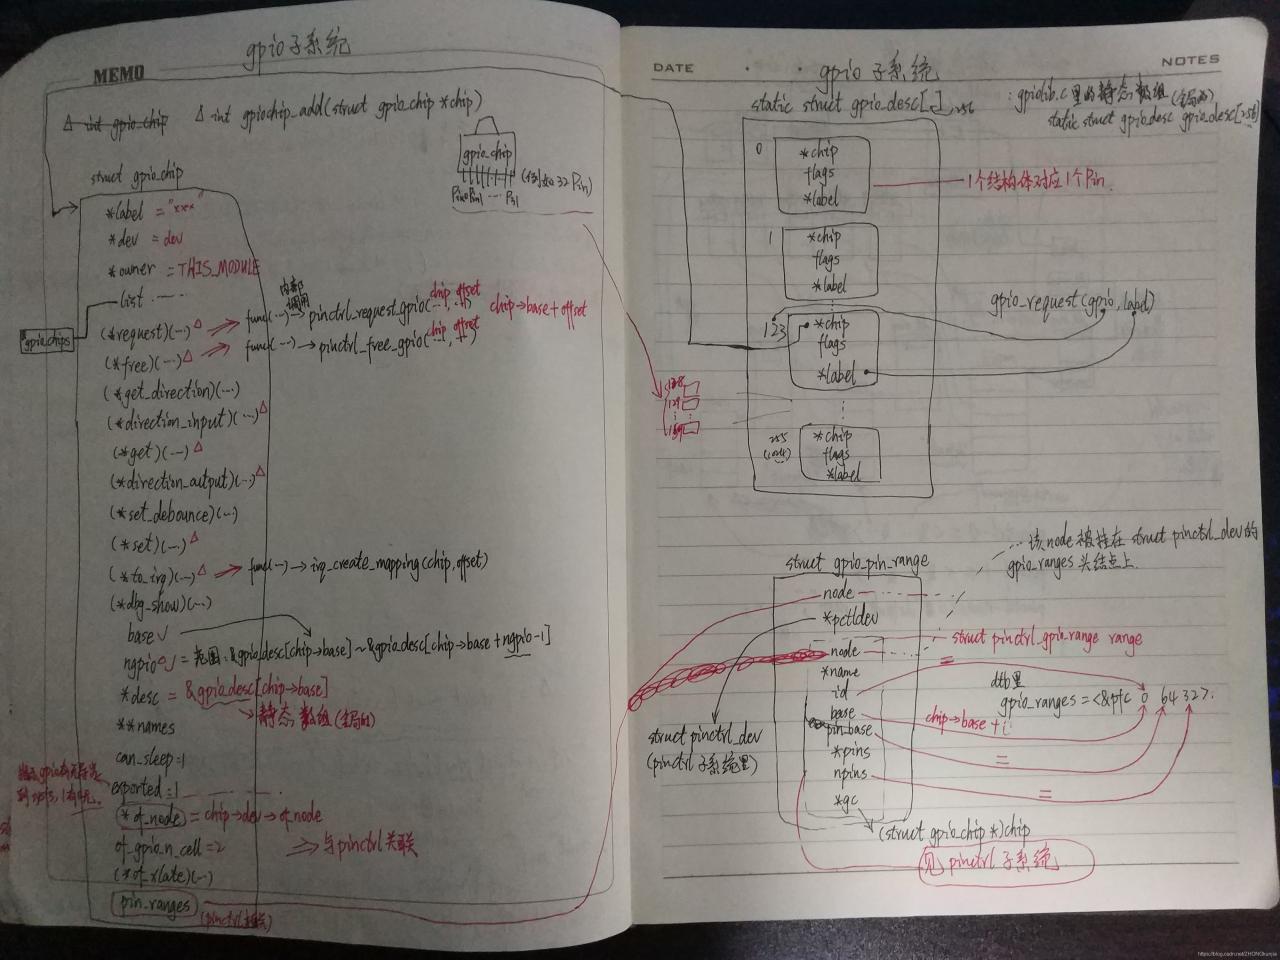 gpio子系统
MEMO
△ int gpio_chip
△ int gpiochip_add(struct gpio_chip *chip)
gpio_chip
(例如32Pin)
Pin0 Pin1 ...
struct gpio_chip
*label = "xxx"
*dev = dev
*owner = THIS_MODULE
list ......
gpio_chips
内部调用
(*request)(...)△ func(...)→pinctrl_request_gpio(...)
chip offset
chip→base+offset
(*free)(...)△ func(...)→pinctrl_free_gpio(...)
chip offset
(*get_direction)(...)
(*direction_input)(...)△
(*get)(...)△
(*direction_output)(...)△
(*set_debounce)(...)
(*set)(...)△
(*to_irq)(...)△ func(...)→irq_create_mapping(chip,offset)
(*dbg_show)(...)
base√
ngpio√ = 范围:&gpio_desc[chip→base]~&gpio_desc[chip→base+ngpio-1]
*desc = &gpio_desc[chip→base]
静态数组(全局的)
**names
can_sleep=1
exported=1
*of_node = chip→dev→of_node
of_gpio_n_cell=2 ⇒ 与pinctrl关联
(*of_xlate)(...)
pin_ranges
DATE
NOTES
gpio子系统
static struct gpio_desc[ ]256
:gpiolib.c里的静态数组(全局的)
static struct gpio_desc gpio_desc[256]
0
*chip
flags
*label
1个结构体对应1个Pin.
1
*chip
flags
*label
gpio_request(gpio,label)
123
*chip
flags
*label
128
129
159
255
*chip
flags
*label
struct gpio_pin_range
...该node被挂在struct pinctrl_dev的
gpio_ranges头结点上.
node
*pctldev
node
struct pinctrl_gpio_range range
*name
id
dtb里
gpio_ranges=<&pfc 0 64 32>.
base
chip→base+i
pin_base
=
*pins
npins
=
*gc
(struct gpio_chip *)chip
struct pinctrl_dev
(pinctrl子系统里)
见 pinctrl子系统